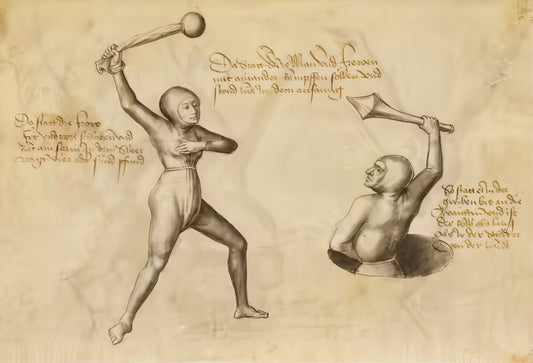 Da statt wie Man vnd frowen
mit ainander kempffen sollen vnd
stond hie in dem anfang
Da statt die frow
fry vnd schlahen vnd
hat ain stain in dem Sleer
wigt vier oder fünf pfund
So statt er in der
gruben bis an die
vnd ist
der kolb als lang
der
von der hand